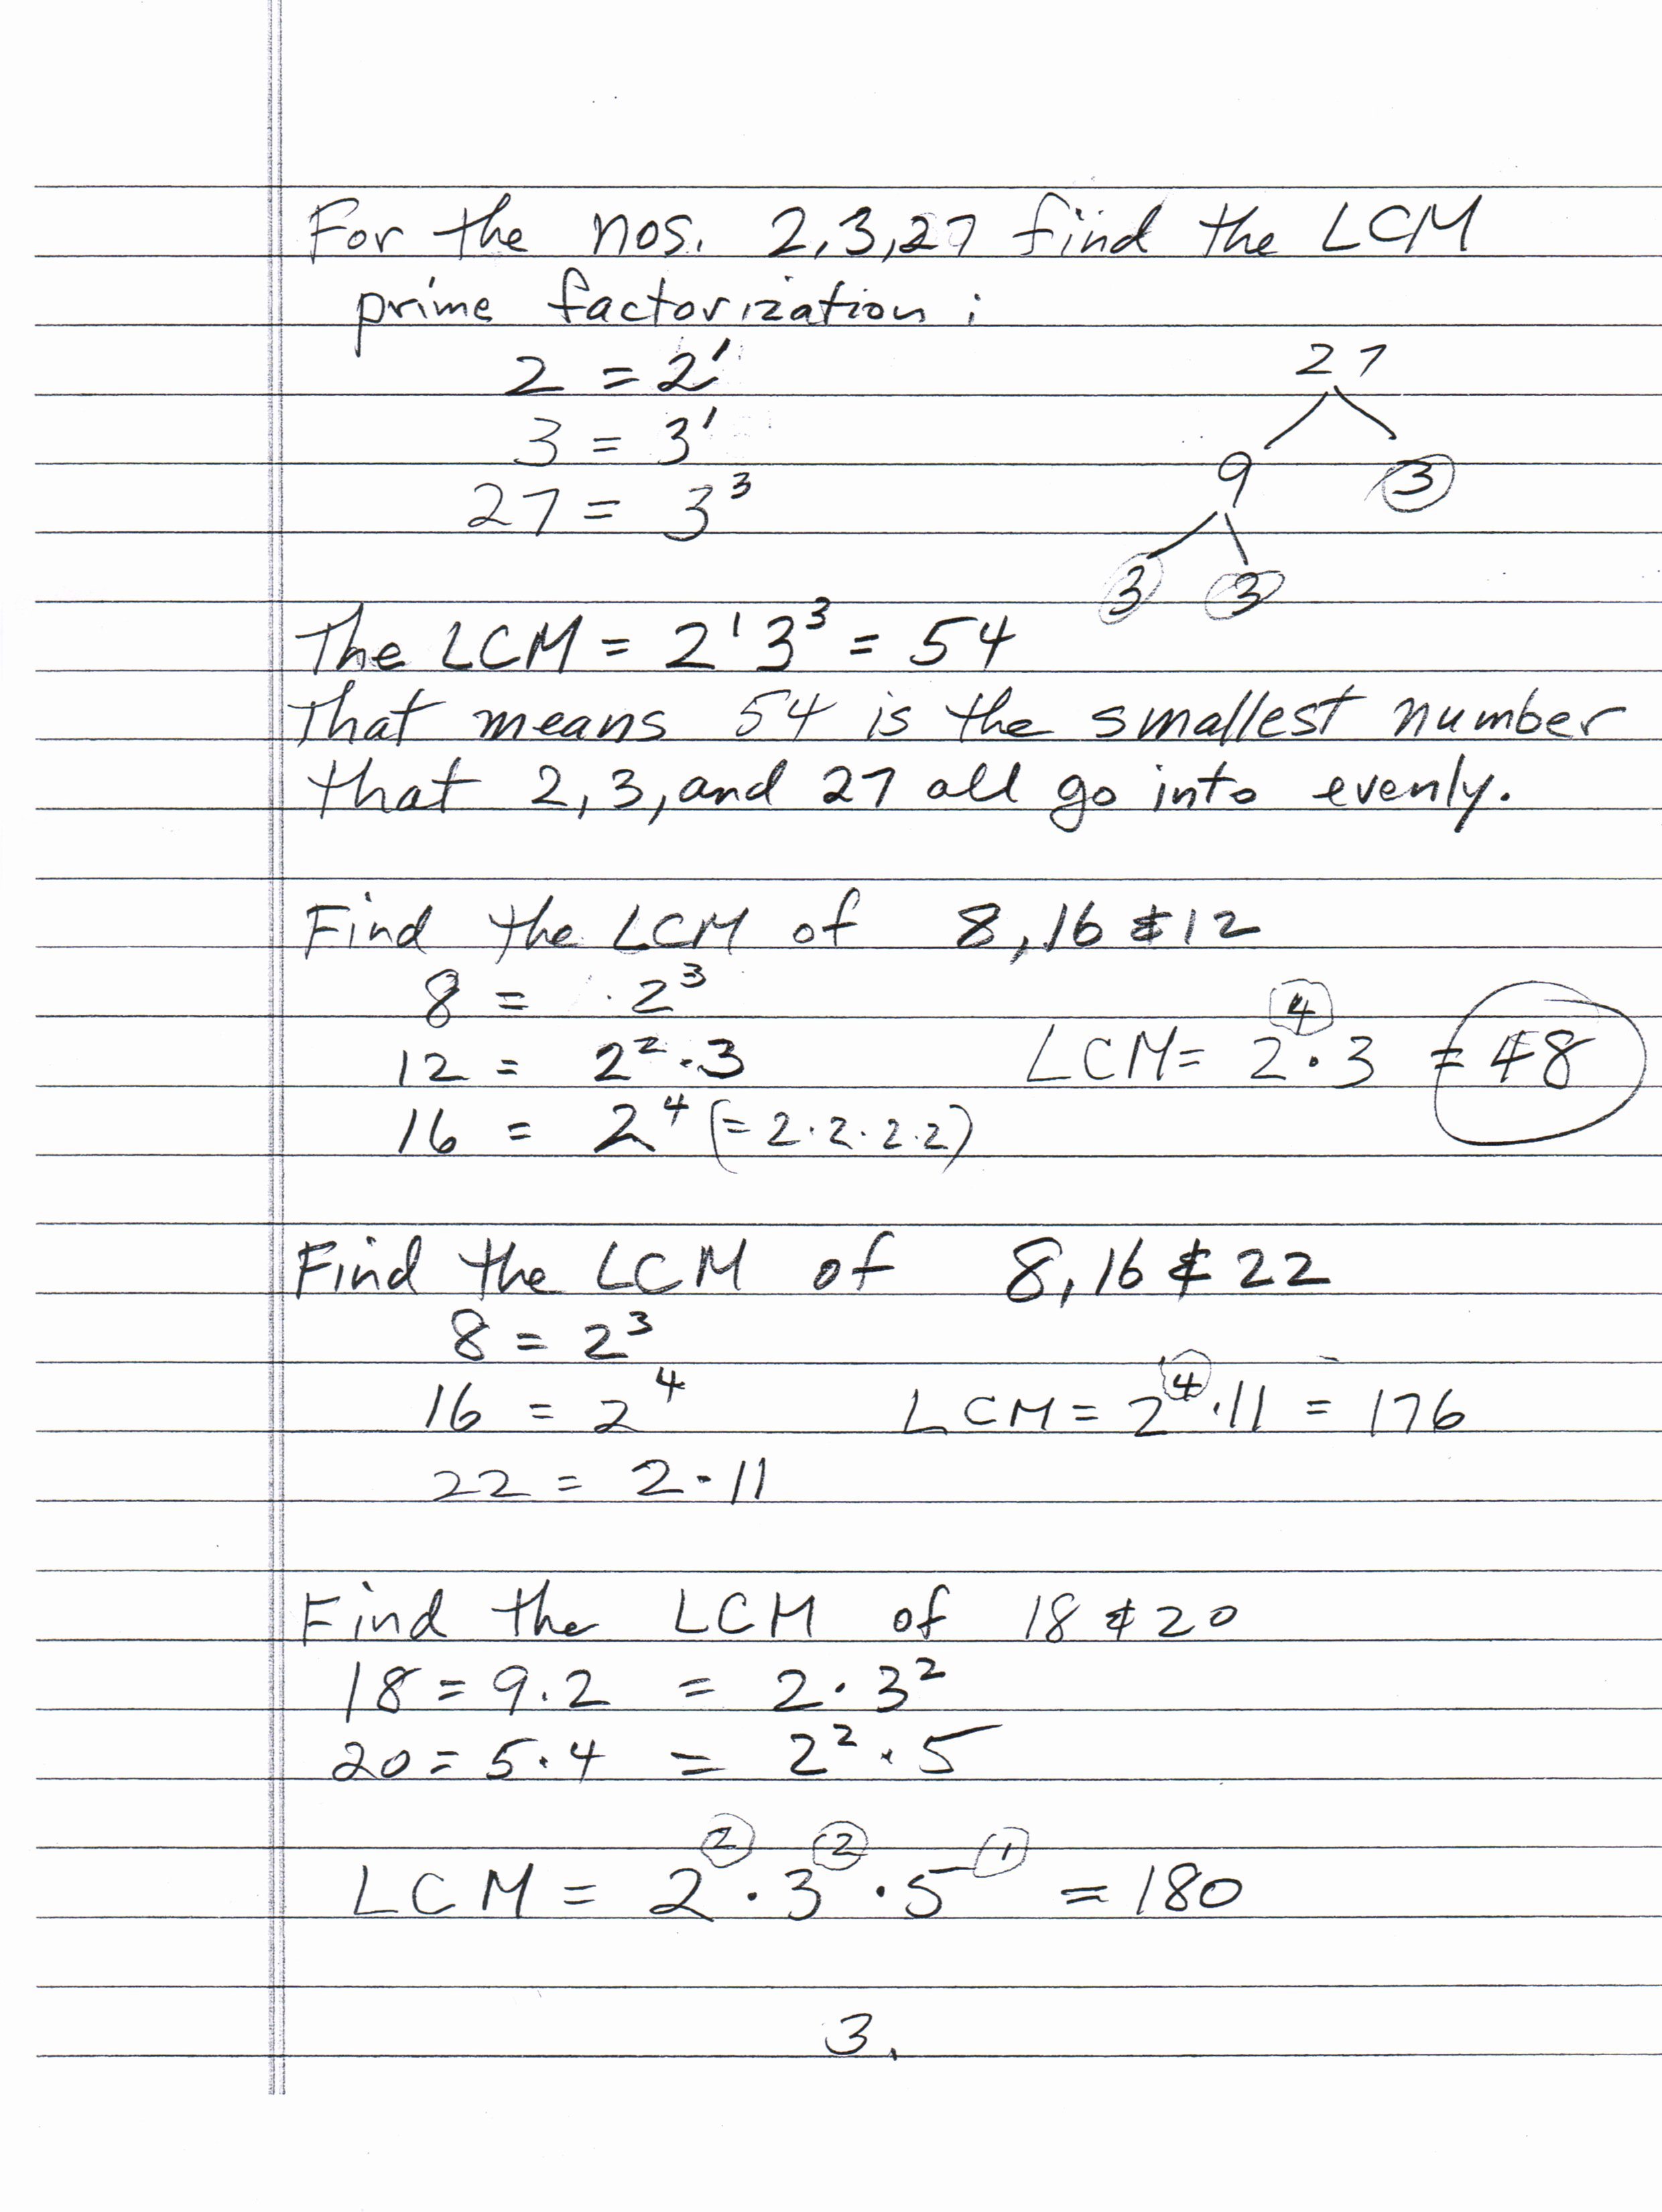 For the nos. 2,3,27 find the LCM
prime factorization:
2 = 2¹
3 = 3¹
27 = 3³
27
9 3
3 3
The LCM = 2¹3³ = 54
That means 54 is the smallest number
that 2,3, and 27 all go into evenly.
Find the LCM of 8,16 & 12
8 = 2³
12 = 2²·3
16 = 2⁴ (= 2·2·2·2)
LCM = 2⁴·3 = 48
Find the LCM of 8,16 & 22
8 = 2³
16 = 2⁴
22 = 2·11
LCM = 2⁴·11 = 176
Find the LCM of 18 & 20
18 = 9·2 = 2·3²
20 = 5·4 = 2²·5
LCM = 2²·3²·5¹ = 180
3.